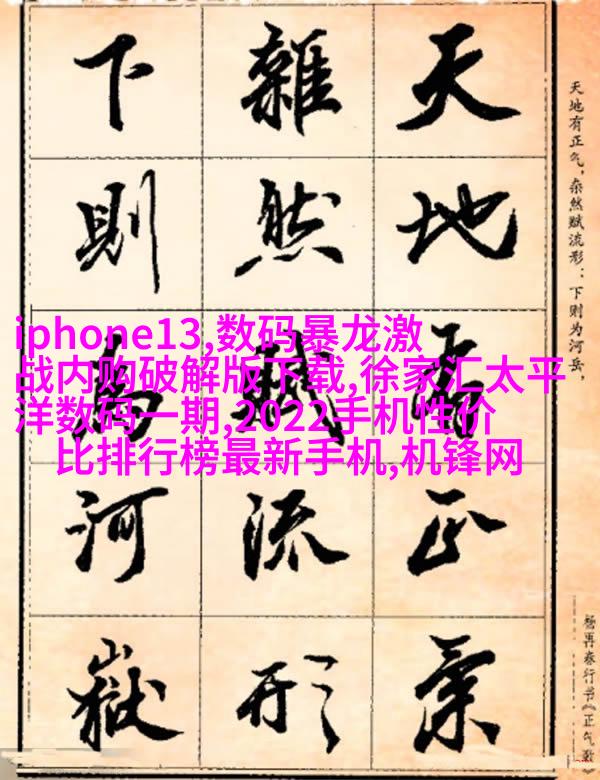 天地有正氣
雜然賦流形
下則為河嶽
天地有正气，杂然赋流形：下则为河岳，
杨再春行书《正气歌》
iphone13,数码暴龙激
战内购破解版下载,徐家汇太平
洋数码一期,2022手机性价
比排行榜最新手机,机锋网